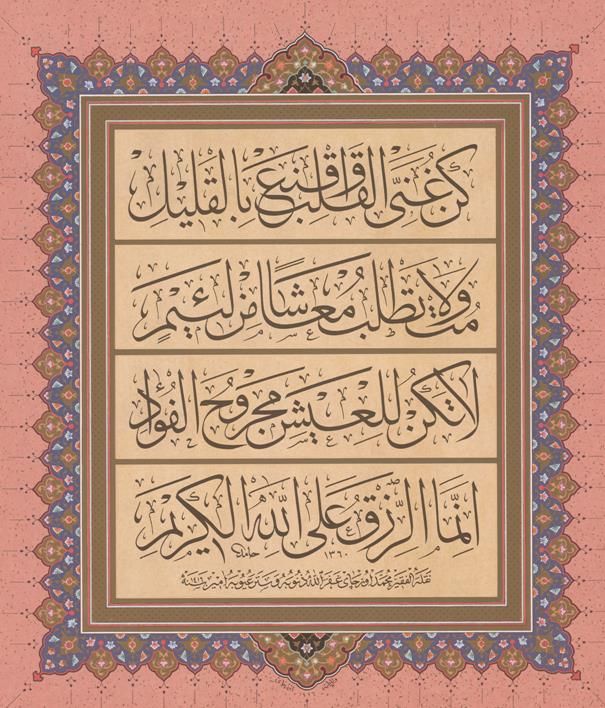 كن غنى القلب واقنع بالقليل
مت ولا تطلب معاشا من لئيم
لا تكن للعيش مجروح الفؤاد
انما الرزق على الله الكريم
حامد ١٣٦٠
نقله الفقير محمد اوزجاى غفر الله ذنوبه وستر عيوبه امين سنة